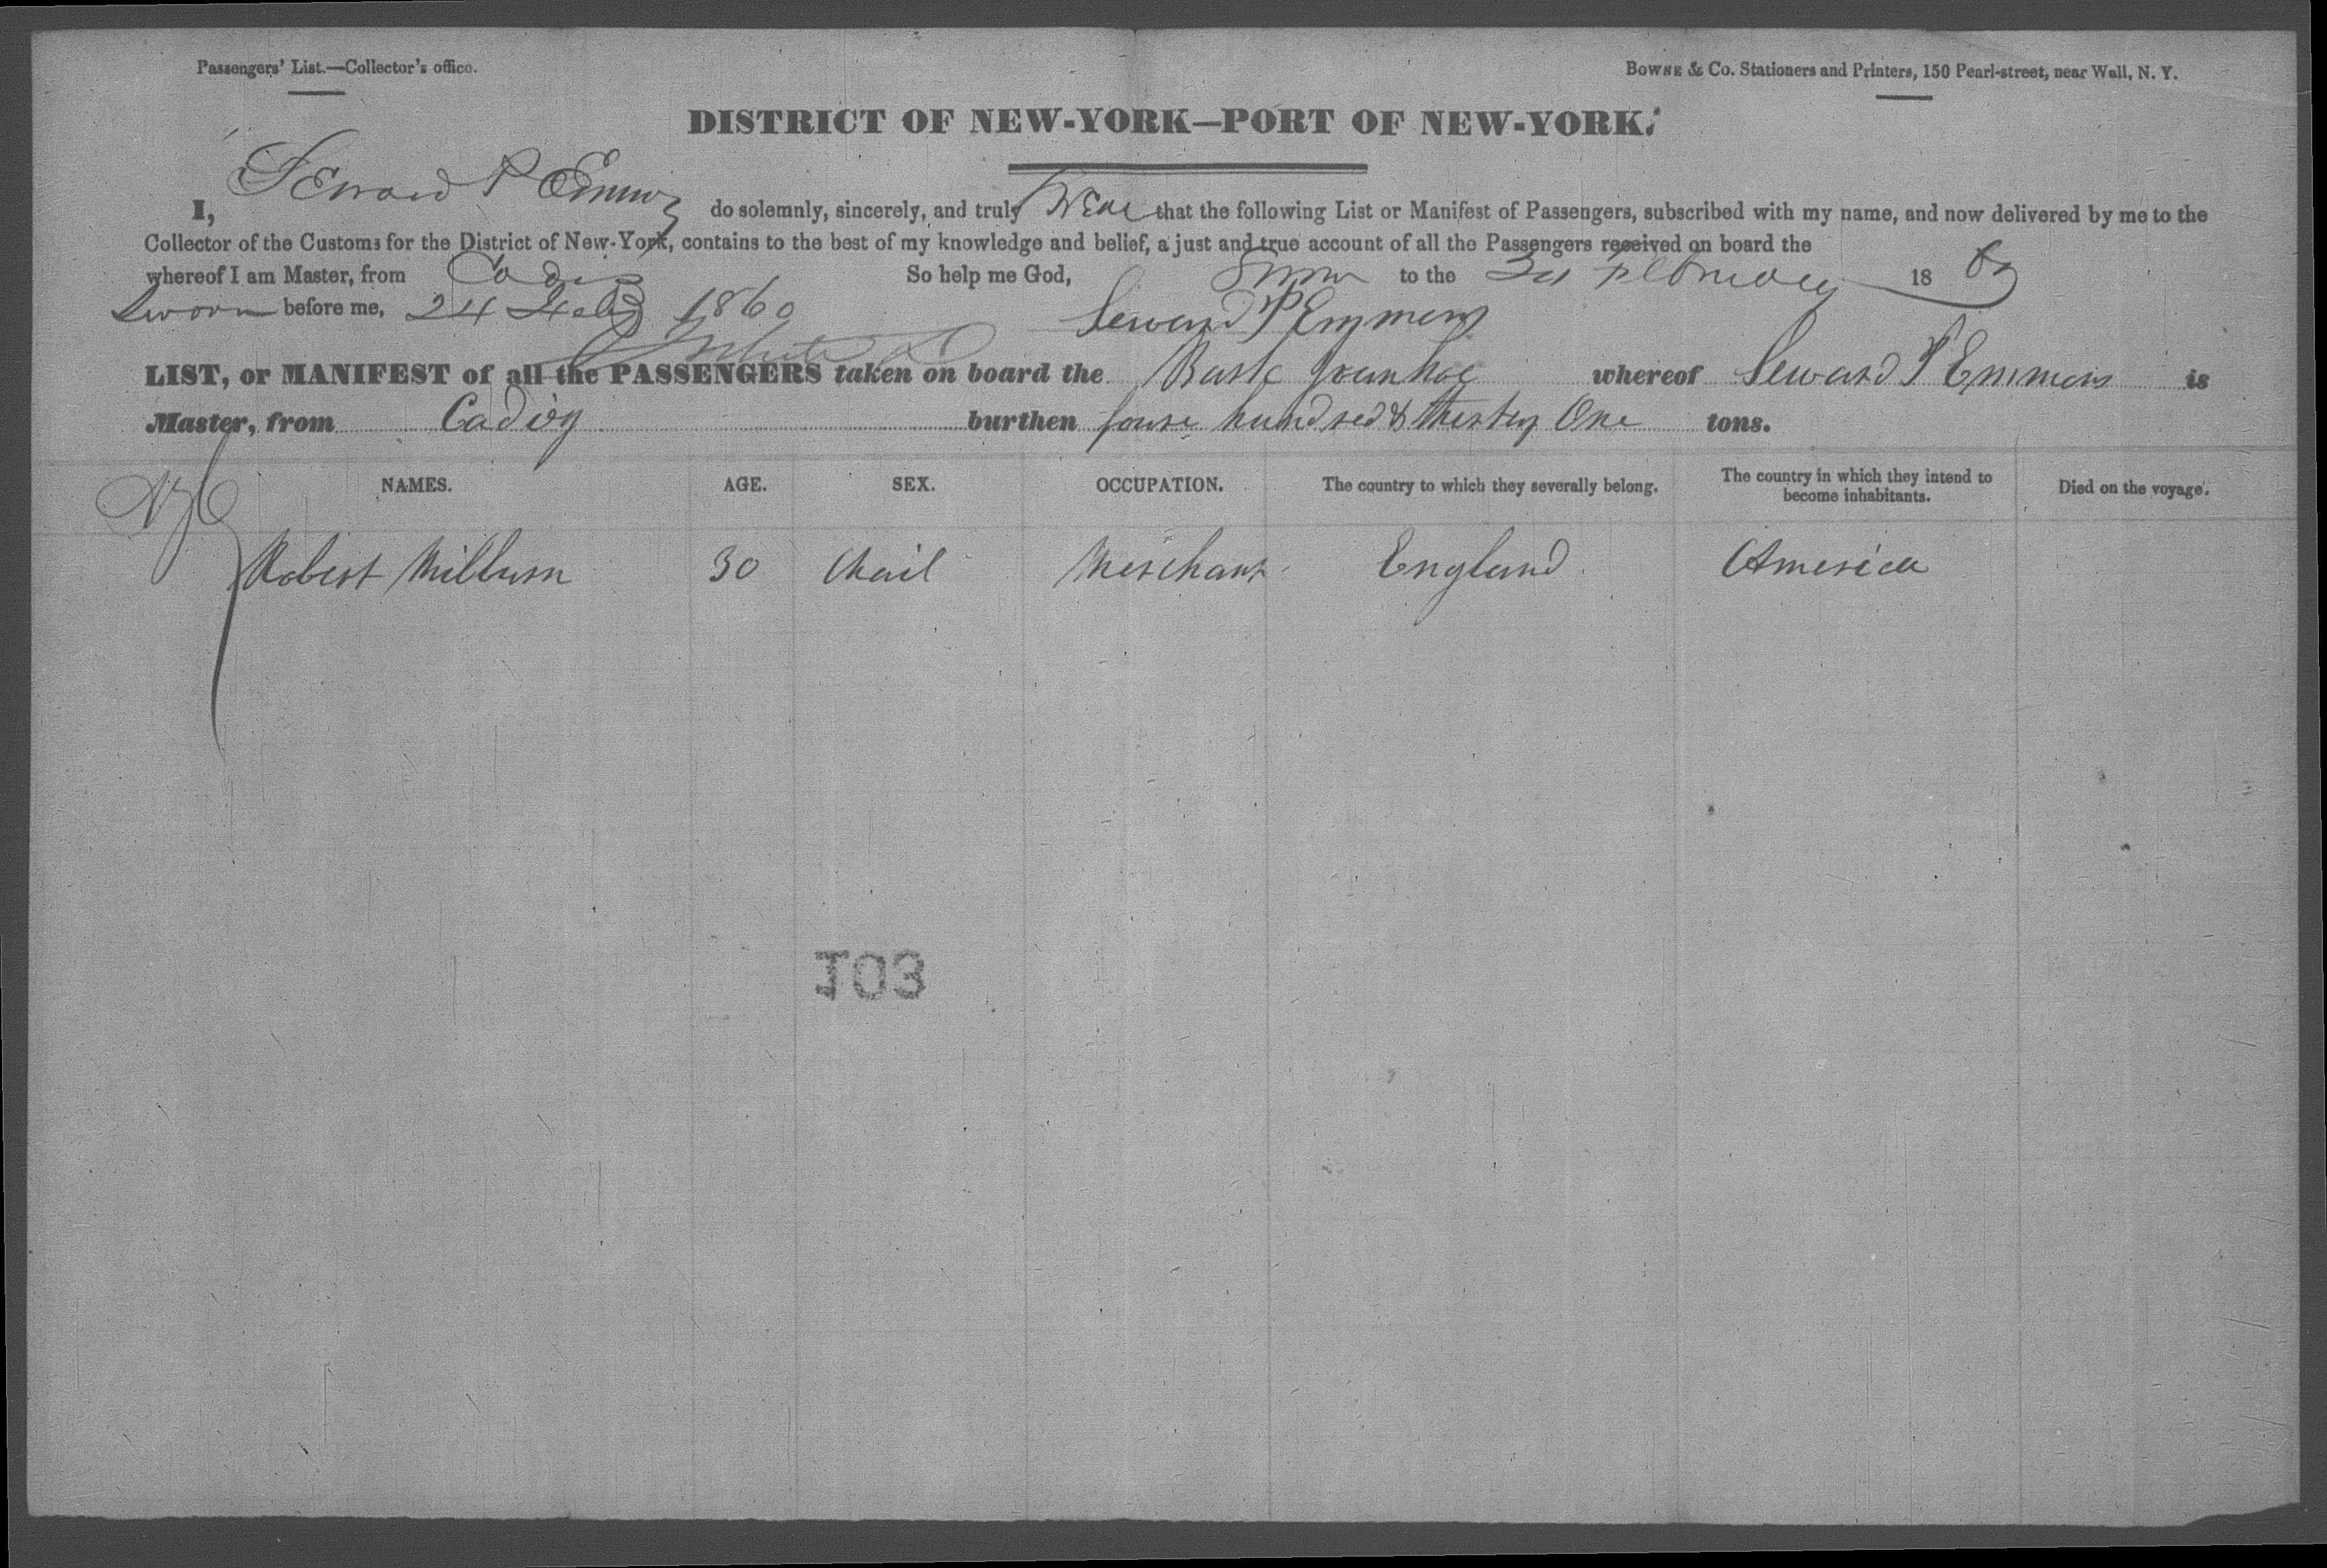 Passengers' List.—Collector's office.
BOWNE & Co. Stationers and Printers, 150 Pearl-street, near Wall, N. Y.
DISTRICT OF NEW-YORK—PORT OF NEW-YORK.
I, Seward P Emmons do solemnly, sincerely, and truly swear that the following List or Manifest of Passengers, subscribed with my name, and now delivered by me to the
Collector of the Customs for the District of New-York, contains to the best of my knowledge and belief, a just and true account of all the Passengers received on board the
whereof I am Master, from Cadiz So help me God, to the February 1860
Sworn before me, 24 Feb 1860 Seward P Emmons
LIST, or MANIFEST of all the PASSENGERS taken on board the Bark Ivanhoe whereof Seward P Emmons is
Master, from Cadiz burthen four hundred & thirty One tons.
NAMES. AGE. SEX. OCCUPATION. The country to which they severally belong. The country in which they intend to become inhabitants. Died on the voyage.
Robert Millburn 30 Mail Merchant England America
103